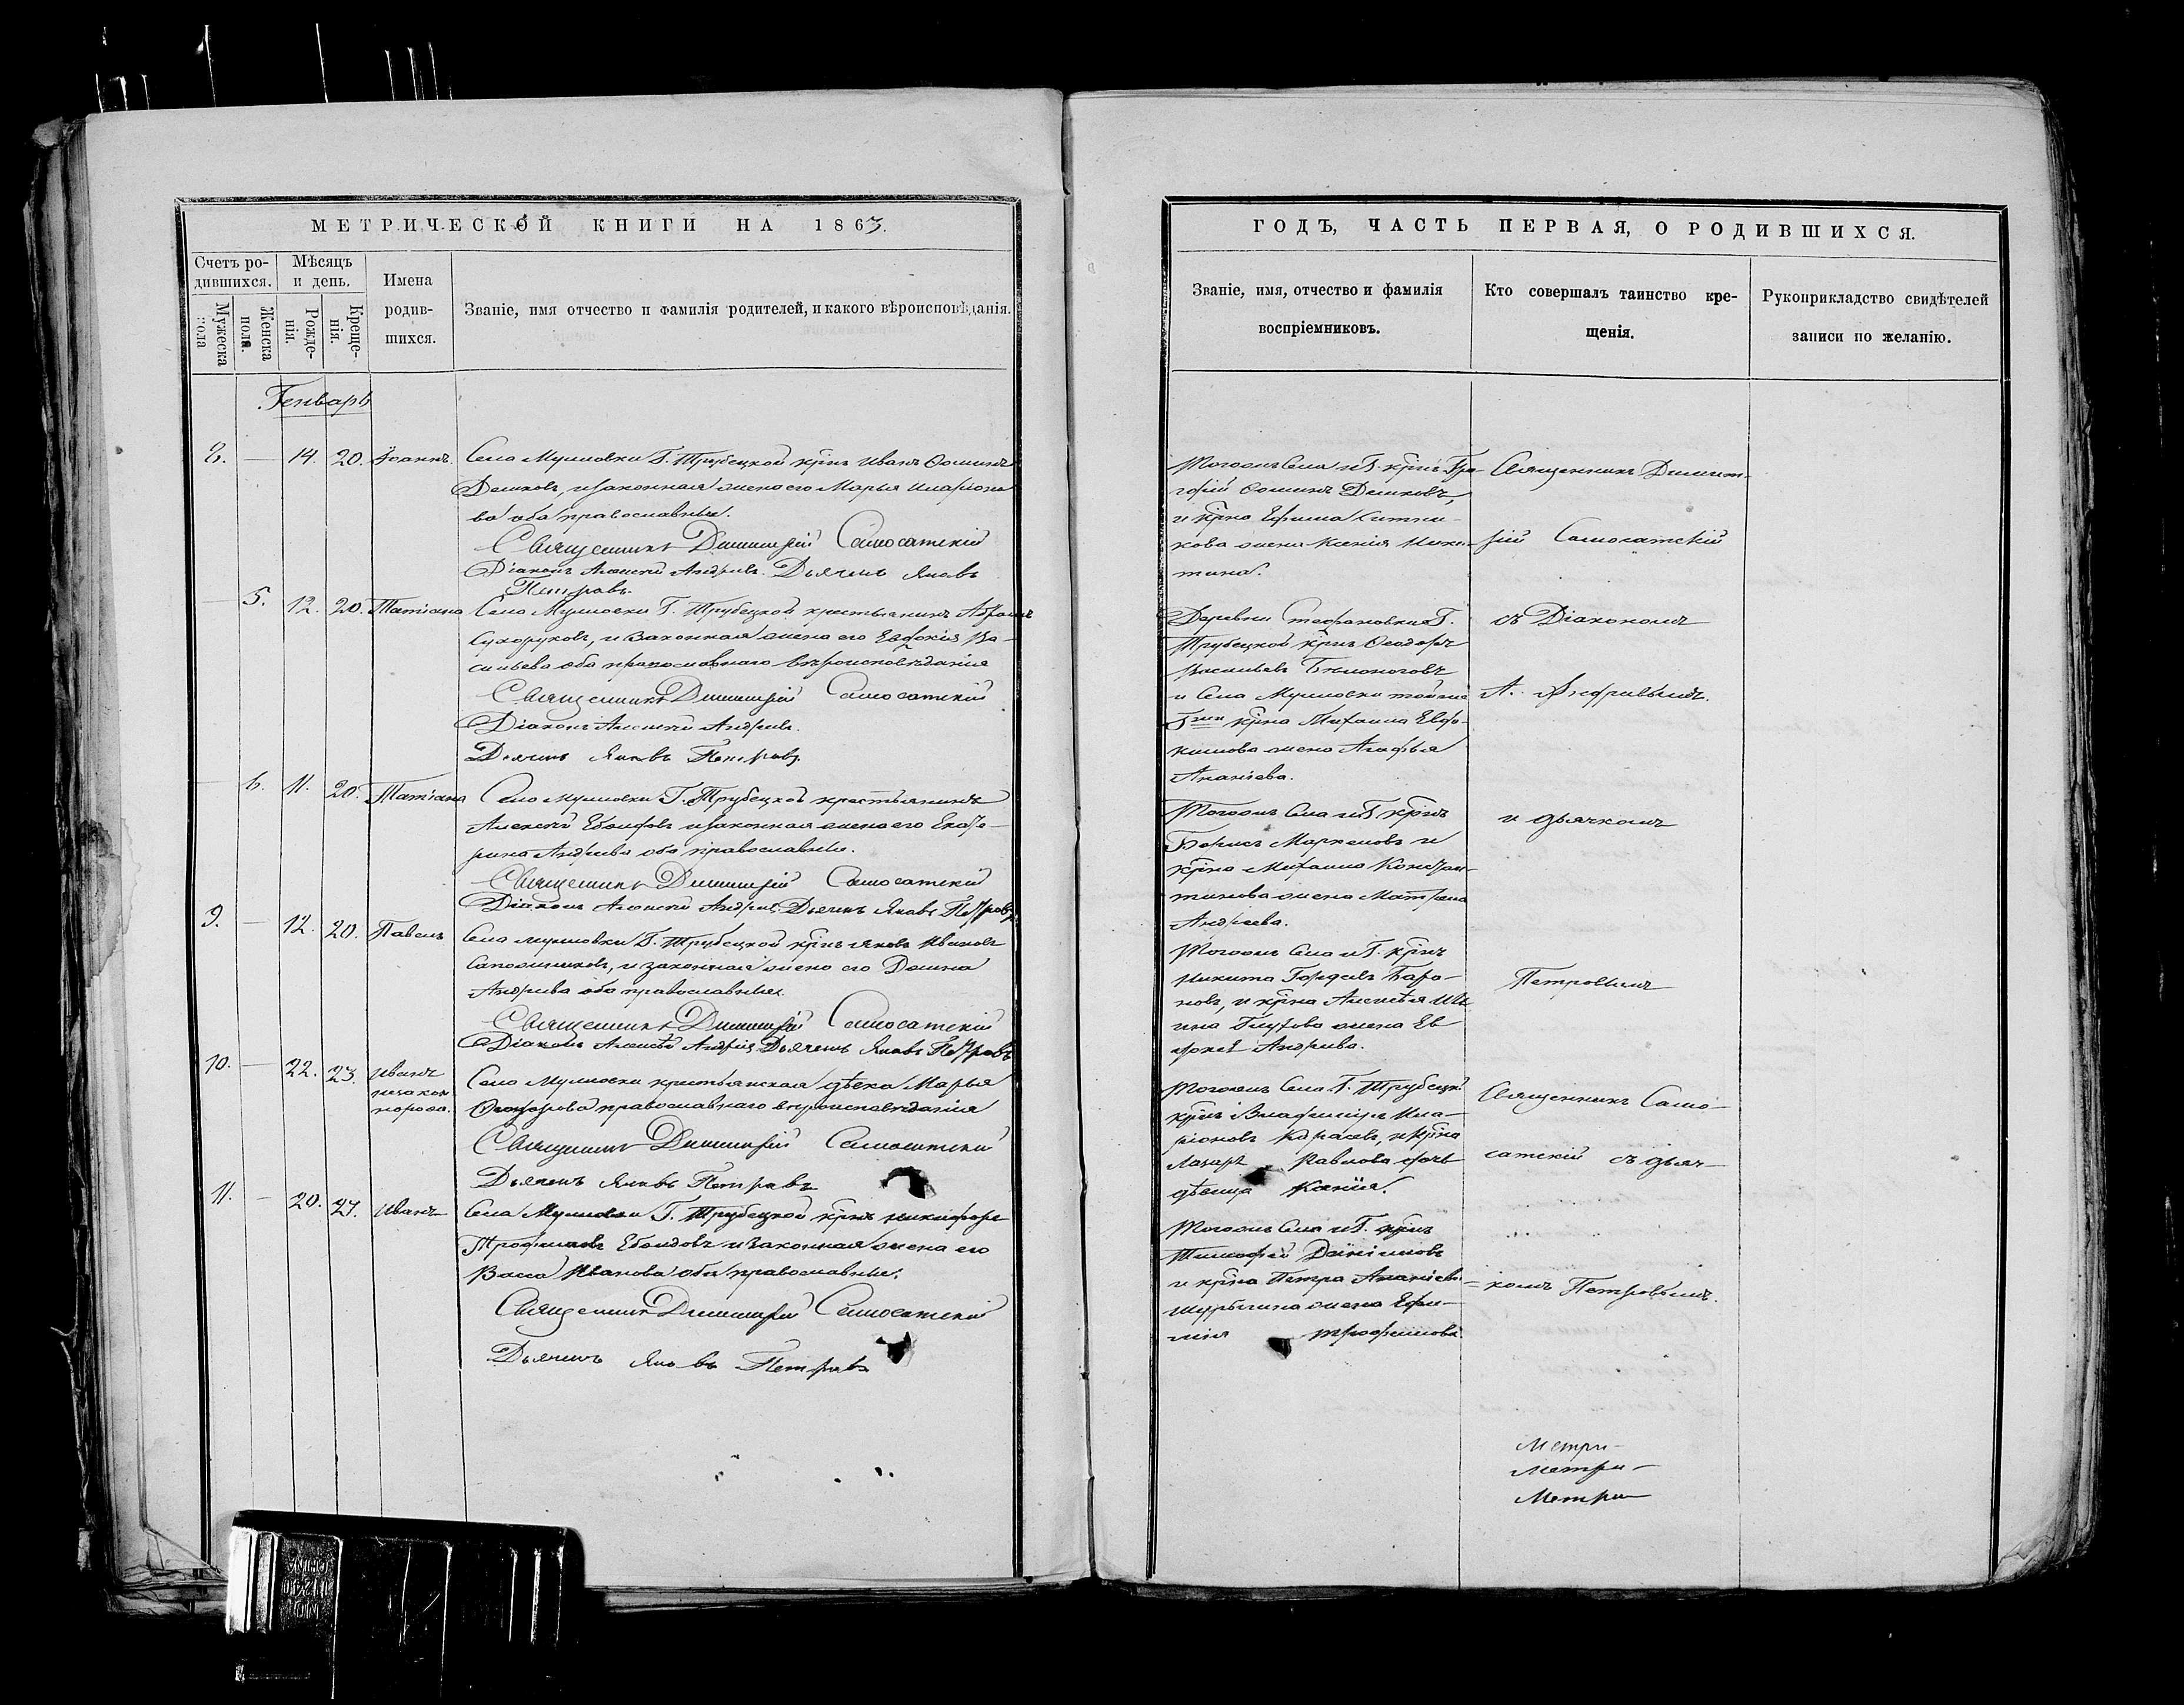 МЕТРИЧЕСКОЙ КНИГИ НА 1863.
Счетъ ро-
дившихся.
Мѣсяцъ
и день.
Мужеска
пола
Женска
пола.
Рожде-
нія.
Креще-
нія.
Имена
родив-
шихся.
Званіе, имя отчество и фамилія родителей, и какого вѣроисповѣданія.
Генварь
8. — 14. 20. Іоаннъ.
Села Муловки Г. Трубецкой крнъ Иванъ Ѳоминъ
Демковъ, и законная жена его Марья Иларіоно
ва оба православные.
Священникъ Димитрій Самосатскій
Діаконъ Алексѣй Андреевъ. Дьячекъ Яковъ
Петровъ.
— 5. 12. 20. Татіана
Села Муловки Г. Трубецкой крестьянинъ Абрамъ
Сухоруковъ, и законная жена его Евдокія Ва-
сильева оба православнаго вѣроисповѣданія
Священникъ Димитрій Самосатскій
Діаконъ Алексѣй Андреевъ.
Дьячекъ Яковъ Петровъ.
— 6. 11. 20. Татіана
Села Муловки Г. Трубецкой крестьянинъ
Алексѣй и законная жена его Екате-
рина Андреева оба православные.
Священникъ Димитрій Самосатскій
Діаконъ Алексѣй Андреевъ. Дьячекъ Яковъ Петровъ.
9. — 12. 20. Павелъ
Села Муловки Г. Трубецкой крнъ Яковъ Ивановъ
Сапожниковъ, и законная жена его Домна
Андреева оба православные.
Священникъ Димитрій Самосатскій
Діаконъ Алексѣй Андреевъ Дьячекъ Яковъ Петровъ
10. — 22. 23. Иванъ
незакон
норож.
Села Муловки крестьянская дѣвка Марья
Ѳеодорова православнаго вѣроисповѣданія
Священникъ Димитрій Самосатскій
Дьячекъ Яковъ Петровъ
11. — 20. 27. Иванъ
Села Муловки Г. Трубецкой крнъ Никифоръ
Трофимовъ и законная жена его
Васса Иванова оба православные.
Священникъ Димитрій Самосатскій
Дьячекъ Яковъ Петровъ
ГОДЪ, ЧАСТЬ ПЕРВАЯ, О РОДИВШИХСЯ.
Званіе, имя, отчество и фамилія
воспріемниковъ.
Кто совершалъ таинство кре-
щенія.
Рукоприкладство свидѣтелей
записи по желанію.
Тогожъ Села и Г. крнъ Гри-
горій Ѳоминъ Демковъ,
и крна Ефима Ситни-
кова жена Ксенія Ники-
тина.
Деревни Стефановки Г.
Трубецкой крнъ Ѳеодоръ
Васильевъ Бѣлоноговъ
и Села Муловки тойже
Гжи крна Михаила Евдо-
кимова жена Агафья
Ананіева.
Тогожъ Села и Г. крнъ
Борисъ Маркеловъ и
крна Михаила Констан-
тинова жена Матрена
Андреева.
Тогожъ Села и Г. крнъ
Никита Гордеевъ Бара-
новъ, и крна Алексѣя Иль
ина Глухова жена Ев
докія Андреева.
Тогожъ Села Г. Трубецкой
крнъ Владиміръ Ила-
ріоновъ Карасевъ, и крна
Лазаря Павлова дочь
дѣвица Ксенія.
Тогожъ Села и Г. крнъ
Тимофей Даніиловъ
и крна Петра Ананіева
жена Ефи-
мія Трофимова.
Священникъ Димит-
рій Самосатскій
съ Діакономъ
А. Андреевымъ.
и дьячкомъ
Петровымъ
Священникъ Само-
сатскій съ дьяч-
комъ Петровымъ.
Метри-
Метри-
Метри-